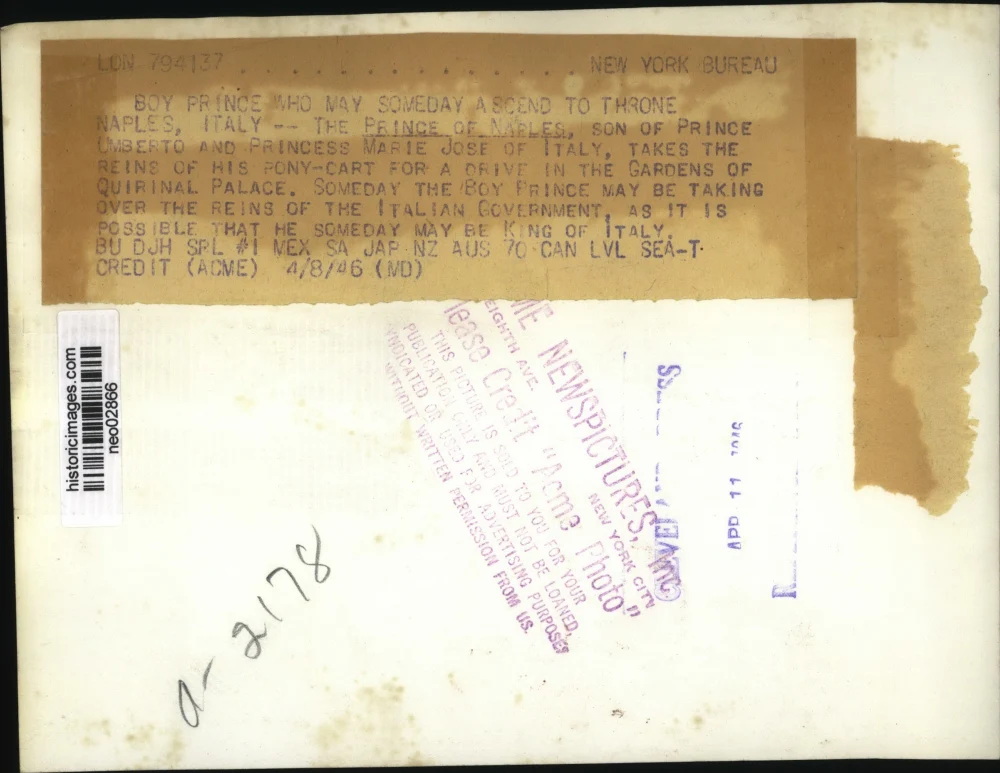 LON 794137 . . . . . . . . . . . . . . NEW YORK BUREAU
BOY PRINCE WHO MAY SOMEDAY ASCEND TO THRONE
NAPLES, ITALY -- THE PRINCE OF NAPLES, SON OF PRINCE
UMBERTO AND PRINCESS MARIE JOSE OF ITALY, TAKES THE
REINS OF HIS PONY-CART FOR A DRIVE IN THE GARDENS OF
QUIRINAL PALACE. SOMEDAY THE BOY PRINCE MAY BE TAKING
OVER THE REINS OF THE ITALIAN GOVERNMENT, AS IT IS
POSSIBLE THAT HE SOMEDAY MAY BE KING OF ITALY.
BU DJH SRL #1 MEX SA JAP NZ AUS 70 CAN LVL SEA-T
CREDIT (ACME) 4/8/46 (MD)
historicimages.com
neo02866
ME NEWSPICTURES, Inc
EIGHTH AVE. NEW YORK CITY
lease Credit "Acme Photo"
THIS PICTURE IS SOLD TO YOU FOR YOUR
PUBLICATION ONLY AND MUST NOT BE LOANED,
YNDICATED OR USED FOR ADVERTISING PURPOSES
WITHOUT WRITTEN PERMISSION FROM US.
APR 11
a-2178